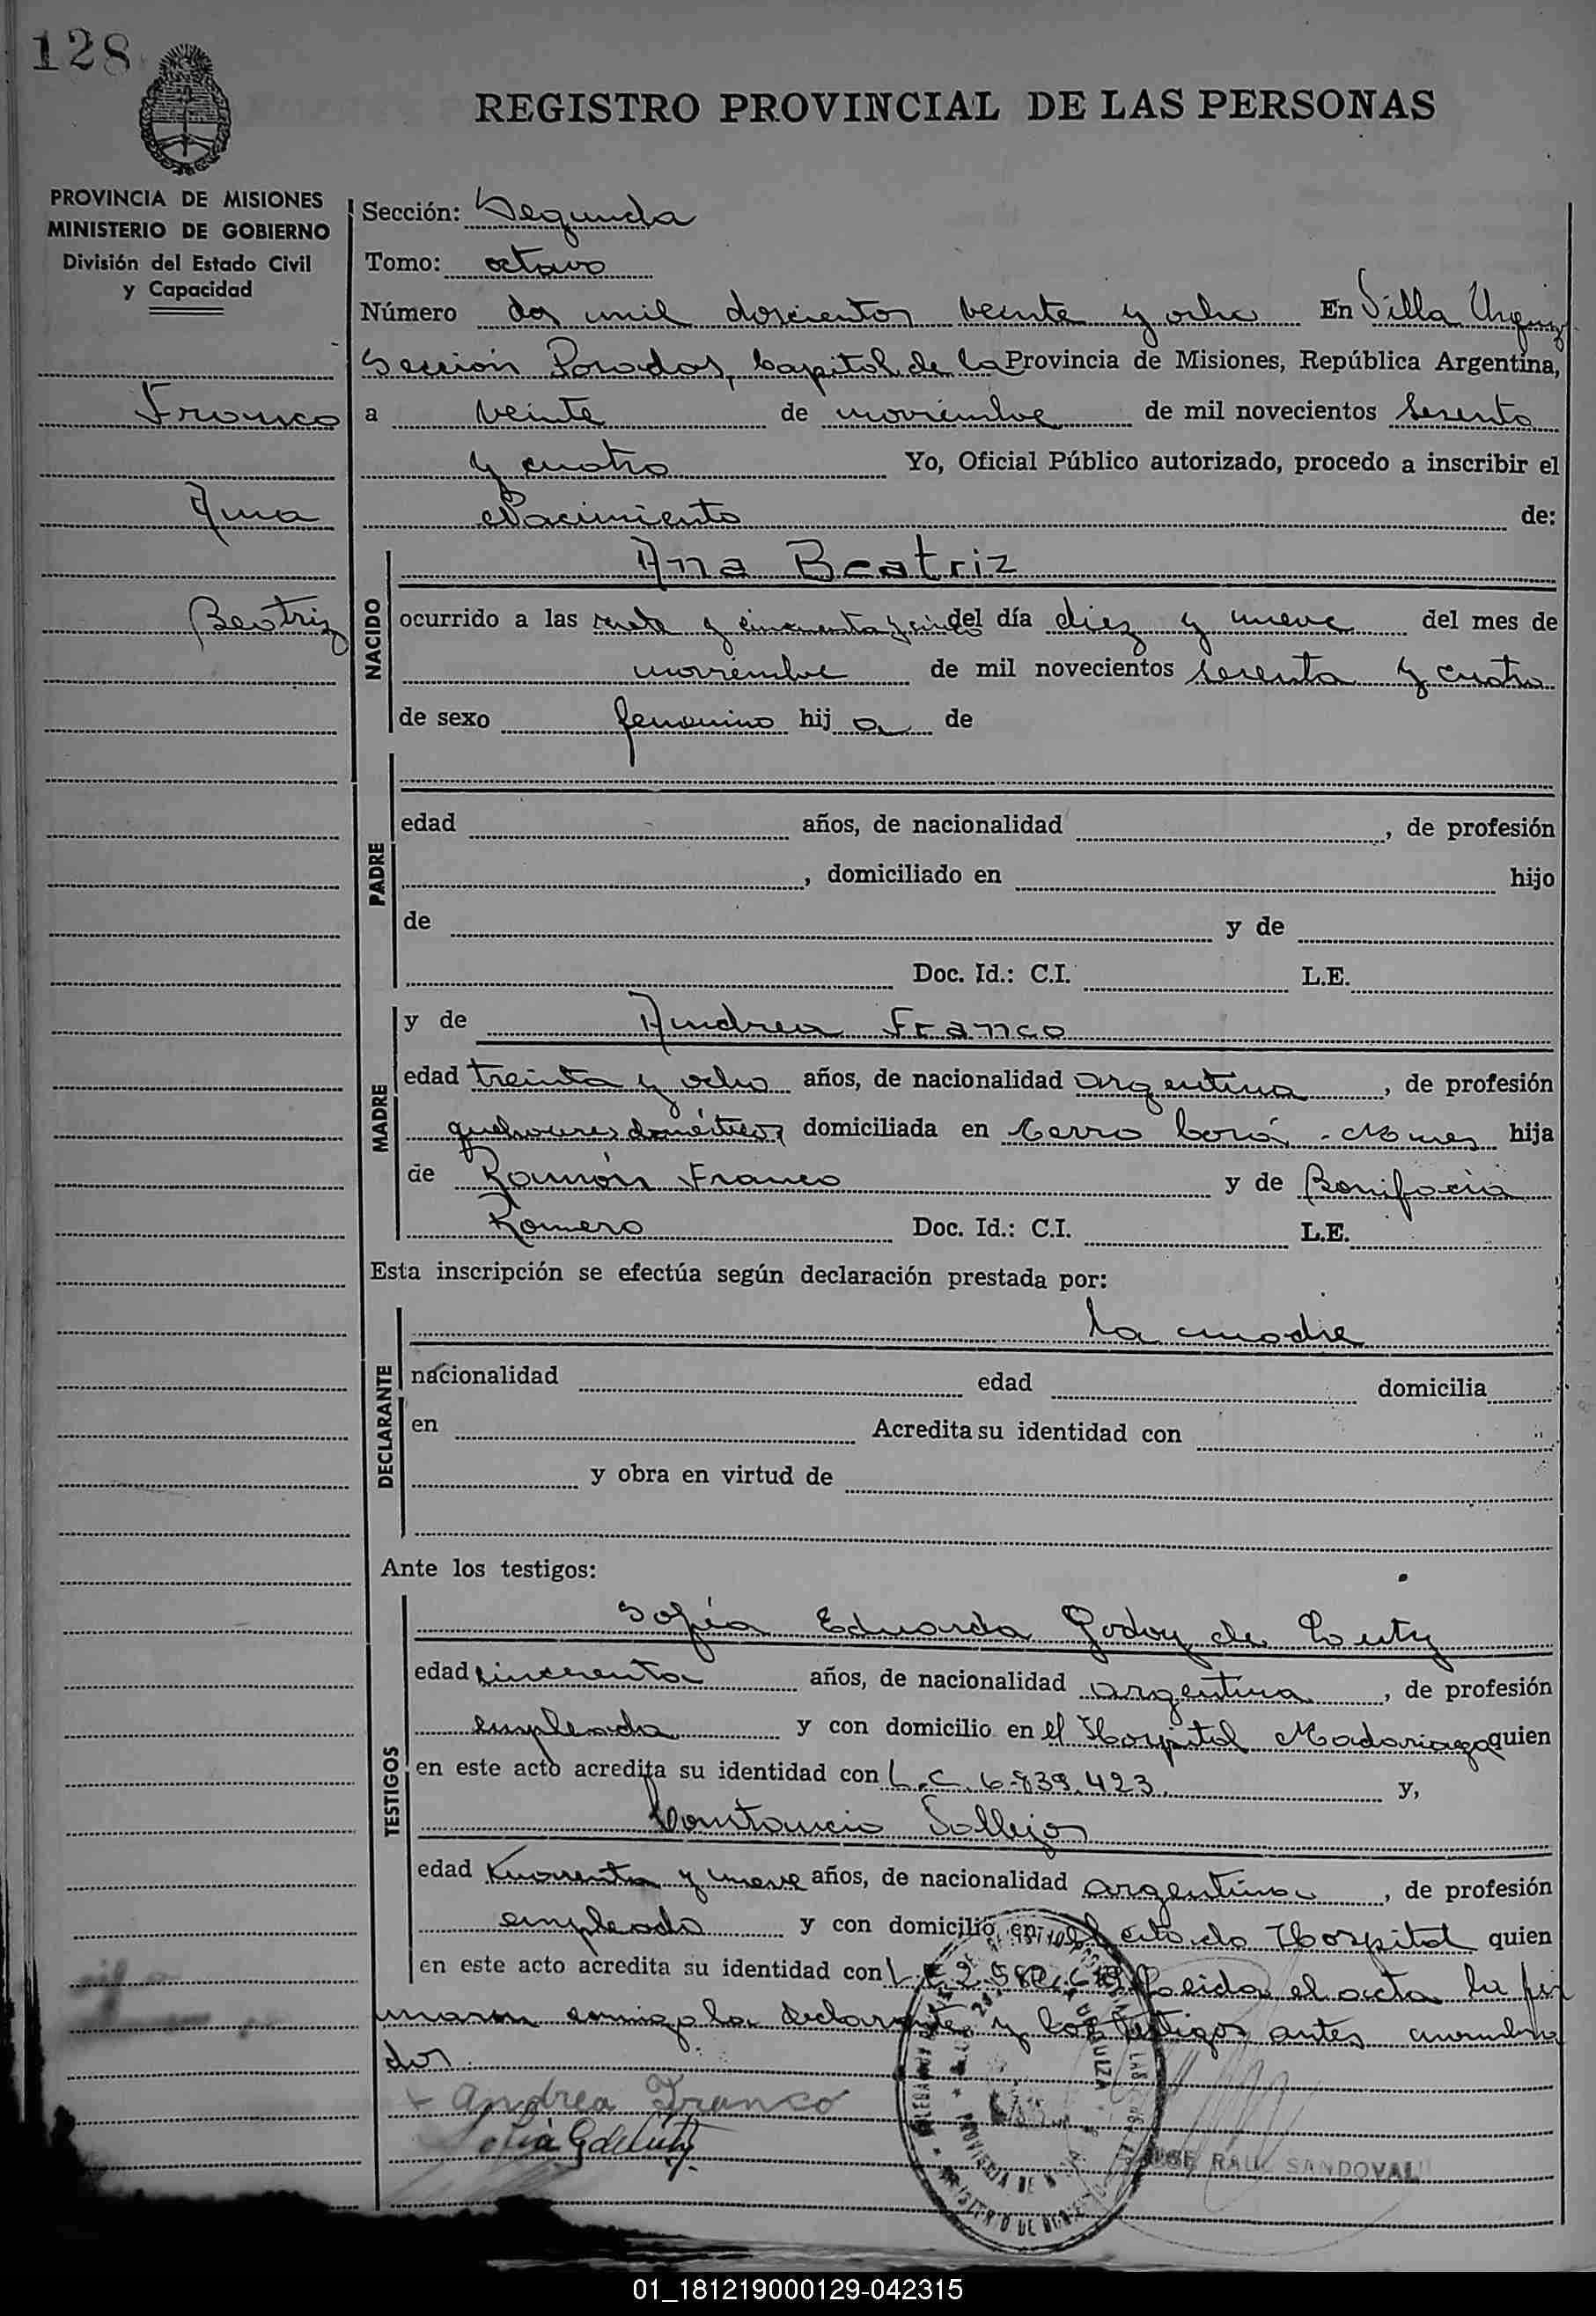 128
REGISTRO PROVINCIAL DE LAS PERSONAS
PROVINCIA DE MISIONES
MINISTERIO DE GOBIERNO
División del Estado Civil
y Capacidad
Franco
Ana
Beatriz
Sección: Segunda
Tomo: octavo
Número dos mil doscientos veinte y ocho En Villa Urquiza
Sección Posadas, Capital de la Provincia de Misiones, República Argentina,
a veinte de noviembre de mil novecientos sesenta
y cuatro Yo, Oficial Público autorizado, procedo a inscribir el
Nacimiento de:
NACIDO
Ana Beatriz
ocurrido a las y cincuenta y cinco del día diez y nueve del mes de
noviembre de mil novecientos sesenta y cuatro
de sexo femenino hij a de
PADRE
edad años, de nacionalidad , de profesión
, domiciliado en hijo
de y de
Doc. Id.: C.I. L.E.
MADRE
y de Andrea Franco
edad treinta y ocho años, de nacionalidad argentina, de profesión
quehaceres domésticos domiciliada en Cerro Corá - Mnes hija
de Ramón Franco y de Bonifacia
Romero Doc. Id.: C.I. L.E.
Esta inscripción se efectúa según declaración prestada por:
DECLARANTE
la madre
nacionalidad edad domicilia
en Acredita su identidad con
y obra en virtud de
Ante los testigos:
TESTIGOS
Sofía Eduarda Godoy de
edad cincuenta años, de nacionalidad argentina, de profesión
empleada y con domicilio en el Hospital Madariaga quien
en este acto acredita su identidad con L.C. 6.839.423. y,
Constancio
edad cuarenta y nueve años, de nacionalidad argentina, de profesión
empleado y con domicilio en el citado Hospital quien
en este acto acredita su identidad con L.E. Leida el acta la fir
maron conmigo la declarante y los testigos antes nombra
dos
Andrea Franco
JOSE RAUL SANDOVAL
01_181219000129-042315